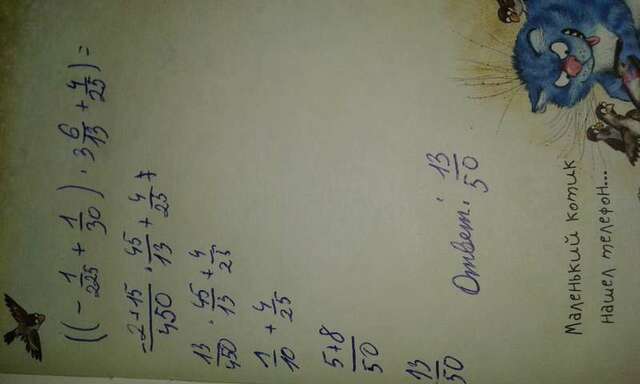 ((- 1/225 + 1/30) · 3 6/13 + 4/25) =
-2+15/450 · 45/13 + 4/25 =
13/450 · 45/13 + 4/25
1/10 + 4/25
5+8/50
13/50
Ответ: 13/50
Маленький котик
нашел телефон...